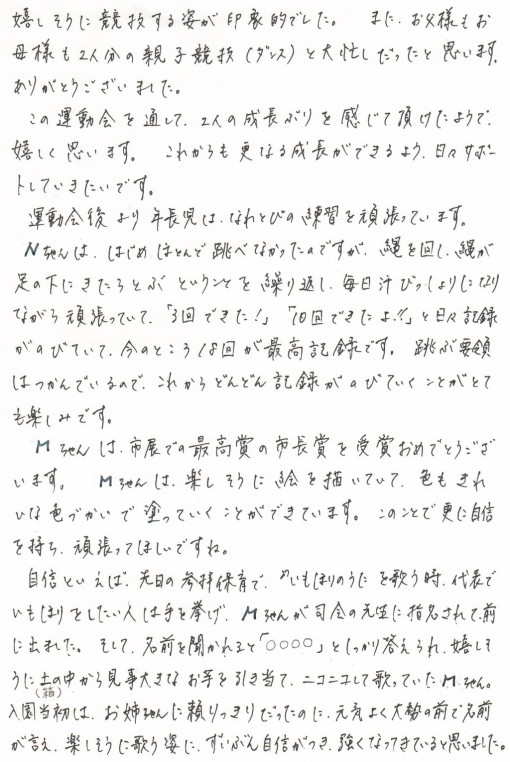 嬉しそうに競技する姿が印象的でした。 また、お父様もお
母様も2人分の親子競技(ダンス)と大忙しだったと思います。
ありがとうございました。
この運動会を通して、2人の成長ぶりを感じて頂けたようで、
嬉しく思います。 これからも更なる成長ができるよう、日々サポー
トしていきたいです。
運動会後より年長児は、なわとびの練習を頑張っています。
Nちゃんは、はじめほとんど跳べなかったのですが、縄を回し、縄が
足の下にきたらとぶということを繰り返し、毎日汗びっしょりになり
ながら頑張っていて、「3回できた!」「10回できたよ!!」と日々記録
がのびていて、今のところ18回が最高記録です。 跳ぶ要領
はつかんでいるので、これからどんどん記録がのびていくことがとて
も楽しみです。
Mちゃんは、市展での最高賞の市長賞を受賞おめでとうござ
います。 Mちゃんは、楽しそうに絵を描いていて、色もきれ
いな色づかいで塗っていくことができています。 このことで更に自信
を持ち、頑張ってほしいですね。
自信といえば、先日の参拝保育で、"いもほりのうた"を歌う時、代表で
いもほりをしたい人は手を挙げ、Mちゃんが司会の先生に指名されて、前
に出ました。 そして、名前を聞かれると「○○○○」としっかり答えられ、嬉しそ
うに土の中から見事大きなお芋を引き当て、ニコニコして歌っていたMちゃん。
(箱)
入園当初は、お姉ちゃんに頼りっきりだったのに、元気よく大勢の前で名前
が言え、楽しそうに歌う姿に、ずいぶん自信がつき、強くなってきていると思いました。